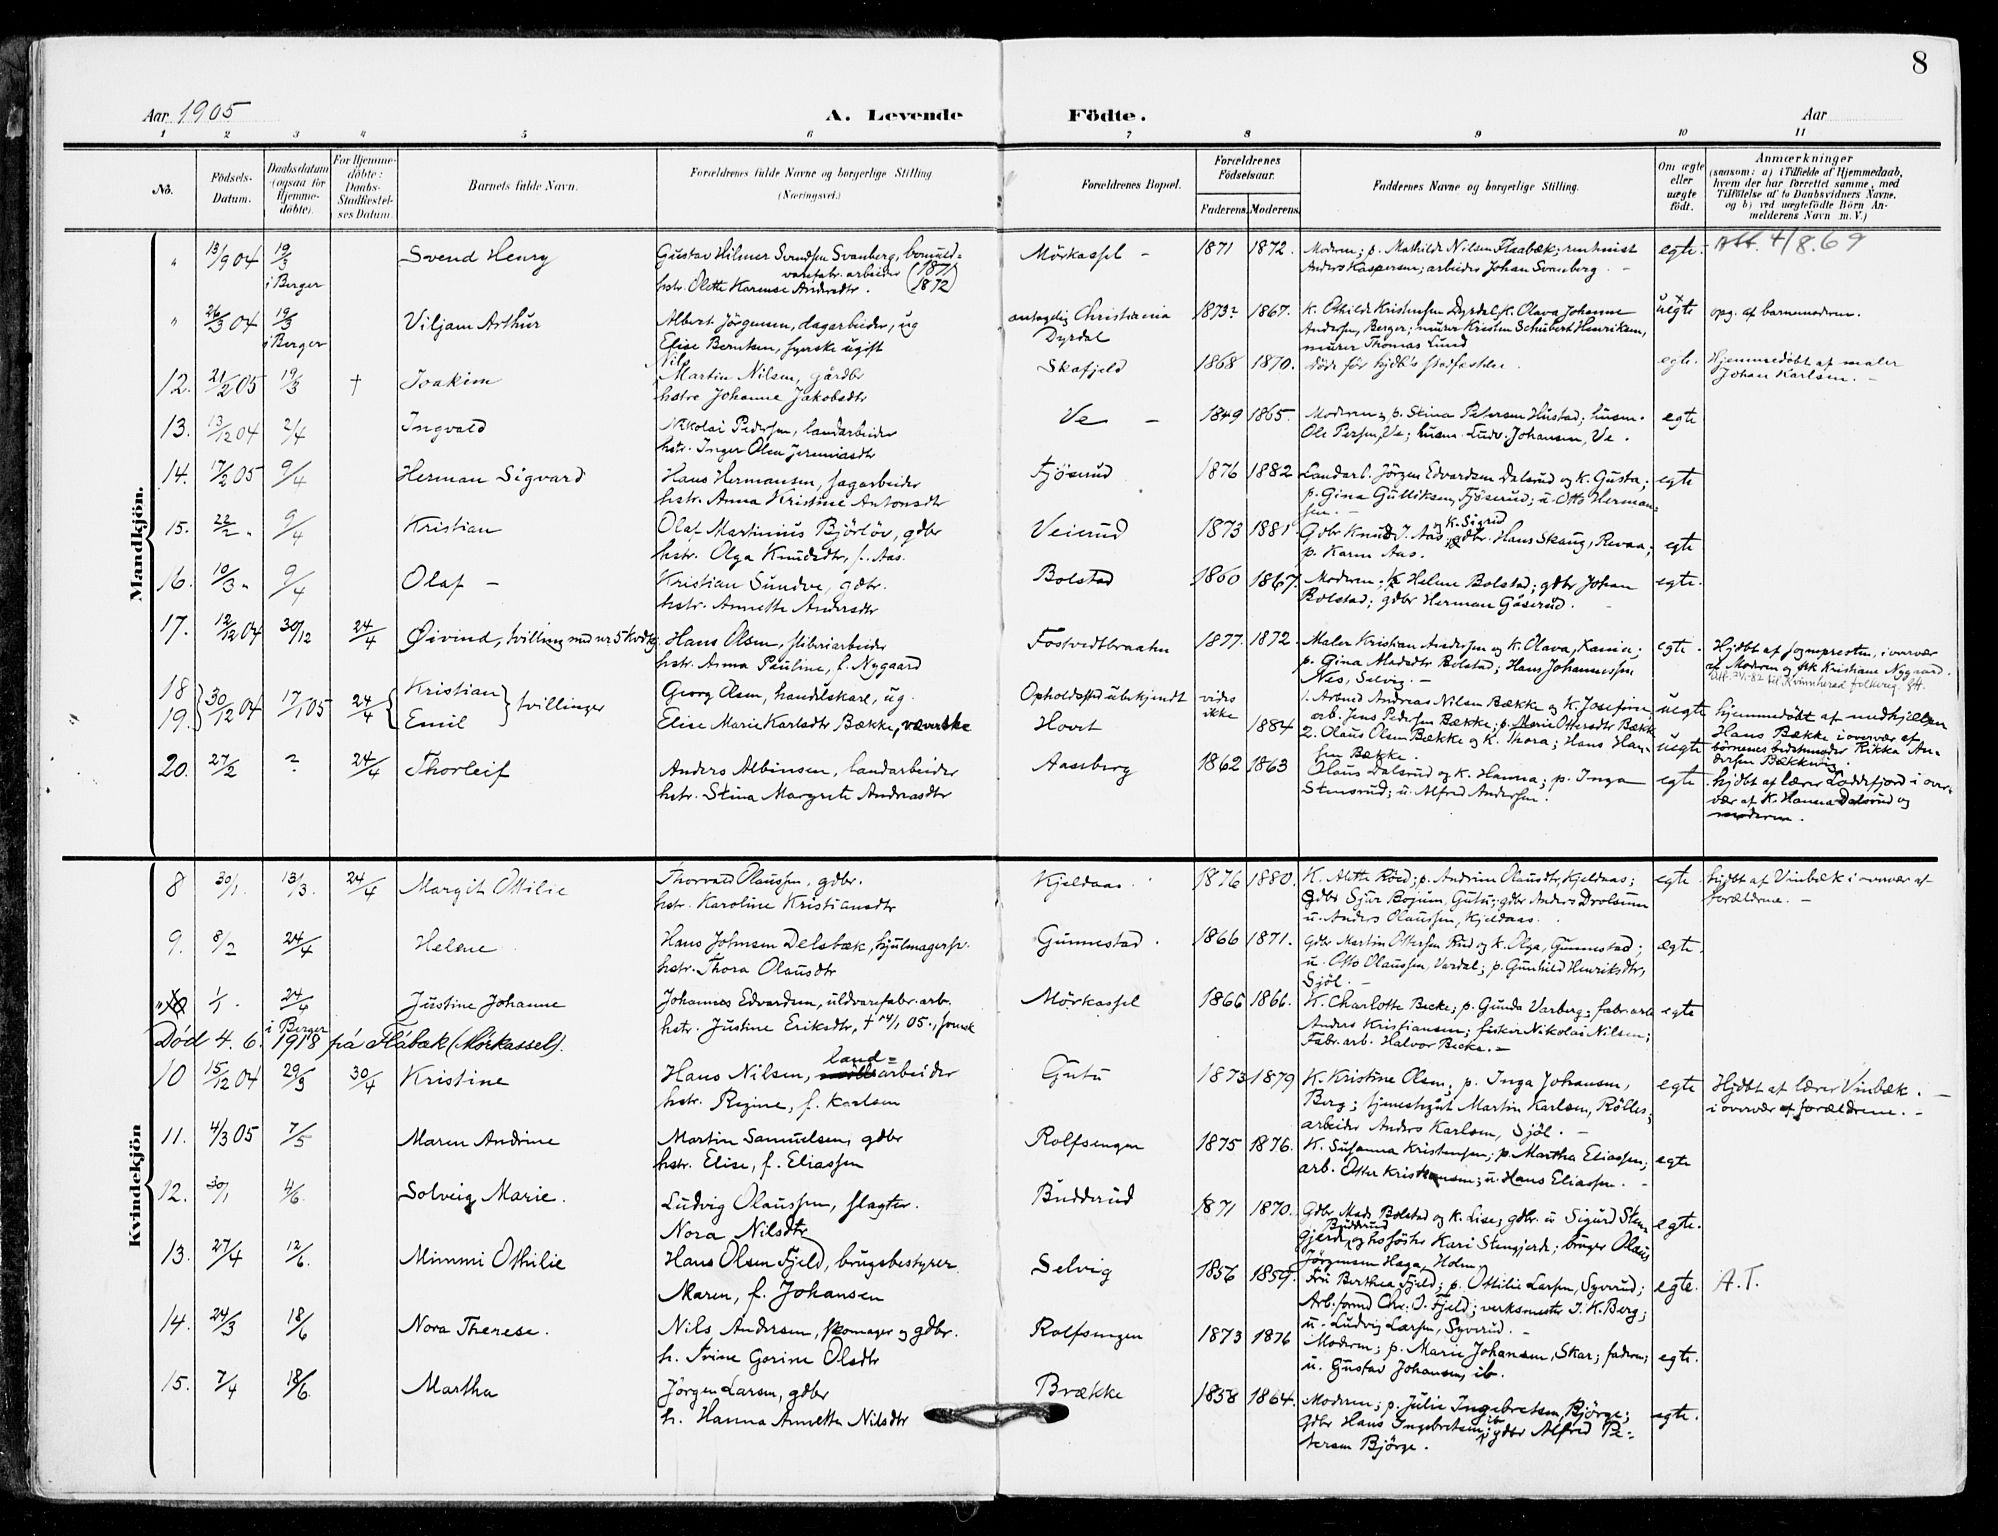 8
Aar 1905
A. Levende
Födte.
Aar
1 2 3 4 5 6 7 8 9 10 11
No.
Födsels-
Datum.
Daabsdatum
(ogsaa for
Hjemme-
döbte).
For Hjemme-
döbte:
Daabs-
Stadfæstel-
ses Datum.
Barnets fulde Navn.
Forældrenes fulde Navne og borgerlige Stilling
(Næringsvei.)
Forældrenes Bopæl.
Forældrenes
Födselsaar.
Faderens. Moderens.
Faddernes Navne og borgerlige Stilling.
Om ægte
eller
uægte
födt.
Anmærkninger
(saasom: a) i Tilfælde af Hjemmedaab,
hvem der har forrettet samme, med
Tilföielse af to Daabsvidners Navne,
og b) ved uægtefödte Börn An-
melderens Navn m. V.)
Mandkjön.
" 13/9 04 19/3 i Berger
Svend Henry
Gustav Hilmer Svendsen Svanberg, bomuld-
varefabr. arbeider (1871
hstr. Olette Karense Andersdtr. 1872)
Mörkassel –
1871 1872.
Moderen; p. Mathilde Nilsen Flaabæk; rentenist
Anders Kaspersen; arbeider Johan Svanberg. –
egte. Att. 4/8.69
" 26/3 04 19/3 i Berger
Viljam Arthur
Albert Jörgensen, dagarbeider, ug
Elise Berntsen, syerske ugift
antagelig Christiania
Dyrdal
1873? 1867.
K. Othilde Kristensen Dyrdal, K. Olava Johanne
Andersen, Berger; murer Kristen Schubert Henriksen,
murer Thomas Lund
uegte opg. af barnemoderen.
12. 21/2 05 19/3 †
Joakim
Nils
Martin Nilsen, gårdbr
hstre Johanne Jakobsdtr
Skafjeld
1868 1870.
döde för hjdb's stadfæstelse.
egte. Hjemmedöbt af maler
Johan Karlsen. –
13. 13/12 04 2/4
Ingvald
Nikolai Pedersen, landarbeider
hstr. Inger Olea Jeremiasdtr
Ve –
1849 1865.
Moderen, p. Stina Petersen Hustad; husm.
Ole Persen, Ve; husm. Ludv. Johansen, Ve.
egte
14. 17/2 05 9/4
Herman Sigvard
Hans Hermansen, sagarbeider
hstr. Anna Kristine Antonsdtr
Fjöserud
1876 1882
Landarb. Jörgen Edvardsen Dalsrud og K. Gusta;
p. Gina Gulliksen, Fjöserud; u. Otto Herman-
sen. –
egte
15. 22/2 " 9/4
Kristian
Olaf Martinius Björlöv, gdbr
hstr. Olga Knudsdtr, f. Aas.
Veierud
1873 1881
og K. Sigrid
Gdbr Knud J. Aas; gdbr. Hans Skaug, Revaa;
p. Karen Aas.
egte
16. 10/3 " 9/4
Olaf –
Kristian Sundve, gdbr.
hstr. Annette Andersdtr
Bolstad
1860 1867.
Moderen; p. Helene Bolstad; gdbr Johan
Bolstad; gdbr Herman Gåserud.
egte.
17. 12/12 04 30/12 24/4
Øivind, tvilling med nr. 5 kvdkj.
Hans Olsen, sliberiarbeider
hstr. Anna Pauline, f. Nygaard
Fostvedtbraaten
1877. 1872.
Maler Kristian Andersen og K. Olava, Ramia;
p. Gina Madsdtr Bolstad; Hans Johannessen
Nes, Selvig. –
egte. Hjdbt af sognpresten, i overvær
af Moderen og frk Kristiane Nygaard.
Att. 24.-82 til Kvinnherad folkereg. GH.
18
19. } 30/12 04 17/1 05 24/4 { Kristian
Emil } tvillinger
Georg Olsen, handelskarl, ug.
Elise Marie Karlsdtr Bække, væverske
Opholdssted ubekjendt
Hovet
vides
ikke 1884
1. Arbeid Andreas Nilsen Bække og K. Josefine;
arb. Jens Pedersen Bække; p. Marie Ottersdtr Bække
2. Olaus Olsen Bække og K. Thora; Hans Han-
sen Bække.
uegte
uegte
hjemmedöbt af nedhjelpen
Hans Bække i overvær af
börnenes bestemoder Rikka An-
dersen Bækkevig.
20. 27/2 ? 24/4
Thorleif
Anders Albinsen, landarbeider
hstr. Stina Margrete Andreasdtr
Aasberg
1862 1863
Olaus Dalsrud og K. Hanna; p. Inga
Stensrud; u. Alfred Andersen.
egte hjdbt af lærer Loddefjord i over-
vær af K. Hanna Dalsrud og
moderen.
Kvindekjön
8 30/1 13/3. 24/4
Margit Ottilie
Thorvald Olaussen, gdbr.
hstr. Karoline Kristiansdtr
Kjeldaas
1876 1880.
K. Alette Röed; p. Andrine Olausdtr, Kjeldaas;
Gdbr Sjur Bojum, Gutu; gdbr Anders Drolsum
u. Anders Olaussen, Kjeldaas.
egte hjdbt af Vinbæk i overvær af
forældrene. –
9. 8/2 24/4
Helene
Hans Johnsen Delsbæk, hjulmagersv.
hstr. Thora Olausdtr
Gunnestad.
1866 1871.
Gdbr Martin Ottersen Rud og K. Olga, Gunnestad;
u. Otto Olaussen, Vardal; p. Gunhild Henriksdtr,
Sjöl. –
ægte.
" 1/1. 24/4 i Berger
Justine Johanne
Johannes Edvardsen, uldvarefabr. arb.
hstr. Justine Eriksdtr, † 14/1 05., svensk
Mörkassel
1866 1866.
K. Charlotte Becke; p. Gunda Varberg; fabr. arb
Anders Kristiansen; fisker Nikolai Nilsen;
Fabr. arb. Halvor Becke. –
egte
Död 4. 6. 1918 på Flåbæk (Mörkassel).
10 15/12 04 29/3 30/4
Kristine
land=
Hans Nilsen, arbeider
hstr. Regine, f. Karlsen
Gutu
1873 1879
K. Kristine Olsen; p. Inga Johansen,
Berg; tjenestegut Martin Karlsen, Rölles;
arbeider Anders Karlsen, Sjöl. –
egte Hjdbt af lærer Vinbæk. –
i overvær af forældrene. –
11. 4/3 05 7/5
Maren Andrine
Martin Samuelsen, gdbr
hstr. Elise, f. Eliassen
Rolfsengen
1875 1876.
K. Susanna Kristensen; p. Martha Eliassen;
arb. Otter Kristensen; u. Hans Eliassen. –
egte
12. 30/1 4/6.
Solveig Marie.
Ludvig Olaussen, slagter.
Nora Nilsdtr
Budderud
1871 1870.
Gdbr Mads Bolstad og K. Lise, gdbr. u Sigurd Sten-
Budderud
gjerde, og hs föster Kari Stengjerde; bruger Olaus
Jörgensen Haga, Holm.
egte.
13. 27/4 12/6.
Mimmi Othilie
Hans Olsen Fjeld, brugsbestyrer.
Maren, f. Johansen
Selvig
1856 1859.
Fru Berthea Fjeld; p. Ottilie Larsen, Syverud;
Arb. formd Chr. O. Fjeld; verksmester J. K. Berg;
u. Ludvig Larsen, Syverud. –
egte. A.T.
14. 24/3 18/6
Nora Therese.
Nils Andersen, skomager og gdbr.
h. Trine Gorine Olsdtr
Rolfsengen
1873 1876
Moderen; p. Marie Johansen, Skar; faderen;
u. Gustav Johansen, ib.
egte.
15. 7/4 18/6.
Martha
Jörgen Larsen, gdbr
h. Hanna Annette Nilsdtr
Brække
1858 1864.
Moderen; p. Julie Ingebretsen, Björge;
Gdbr Hans Ingebretsen ib; gdbr Alfred Pe-
tersen Björge.
egte.